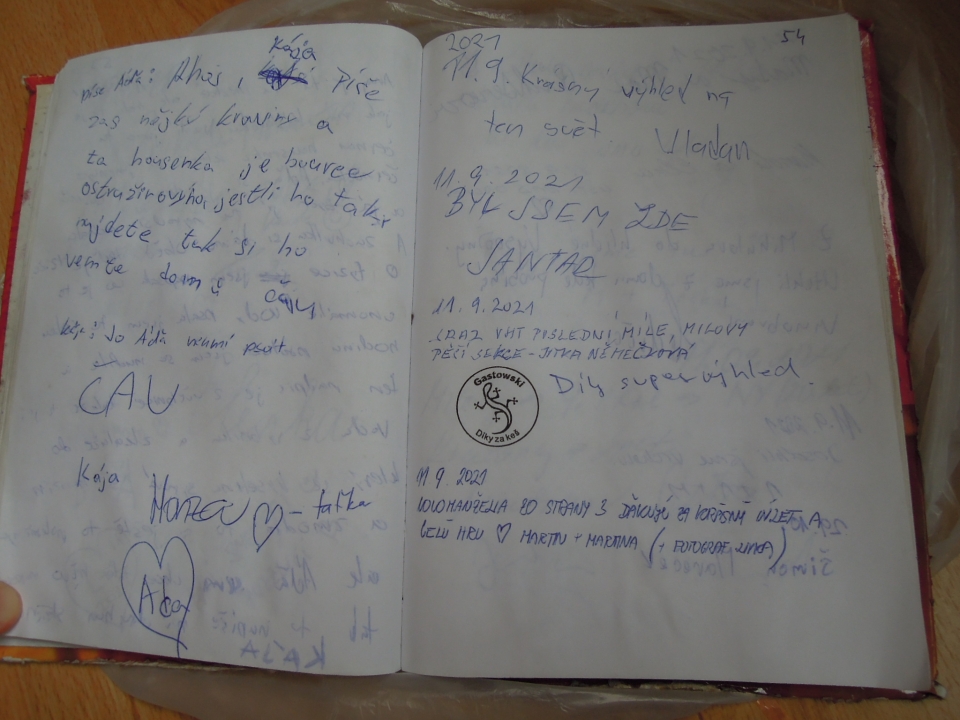 píše Áďa: Ahoj, Kája píše
zas nějký kraviny a
ta housenka je bource
ostružinovýho, jestli ho tak
najdete tak si ho
vemte domů čau
Kája: Jo Áďa neumí psát
ČAU
Kája
Honza ♡ - taťka
Áďa
54
2021
11.9. Krásný výhled na
ten svět. Vladan
11.9.2021
BYL JSEM ZDE
JANTAR
11.9.2021
SRAZ VHT POSLEDNÍ MÍLE, MÍLOVÝ
PĚŠÍ SEKCE - JITKA NĚMEČKOVÁ
Gastowski
Díky za keš
Díky super výhled.
11 9. 2021
ZO STRANY 3 ĎAKUJÚ ZA KRÁSNÝ VÝLET A
CELÚ HRU ♡ MARTIN + MARTINA (+ FOTOGRAF